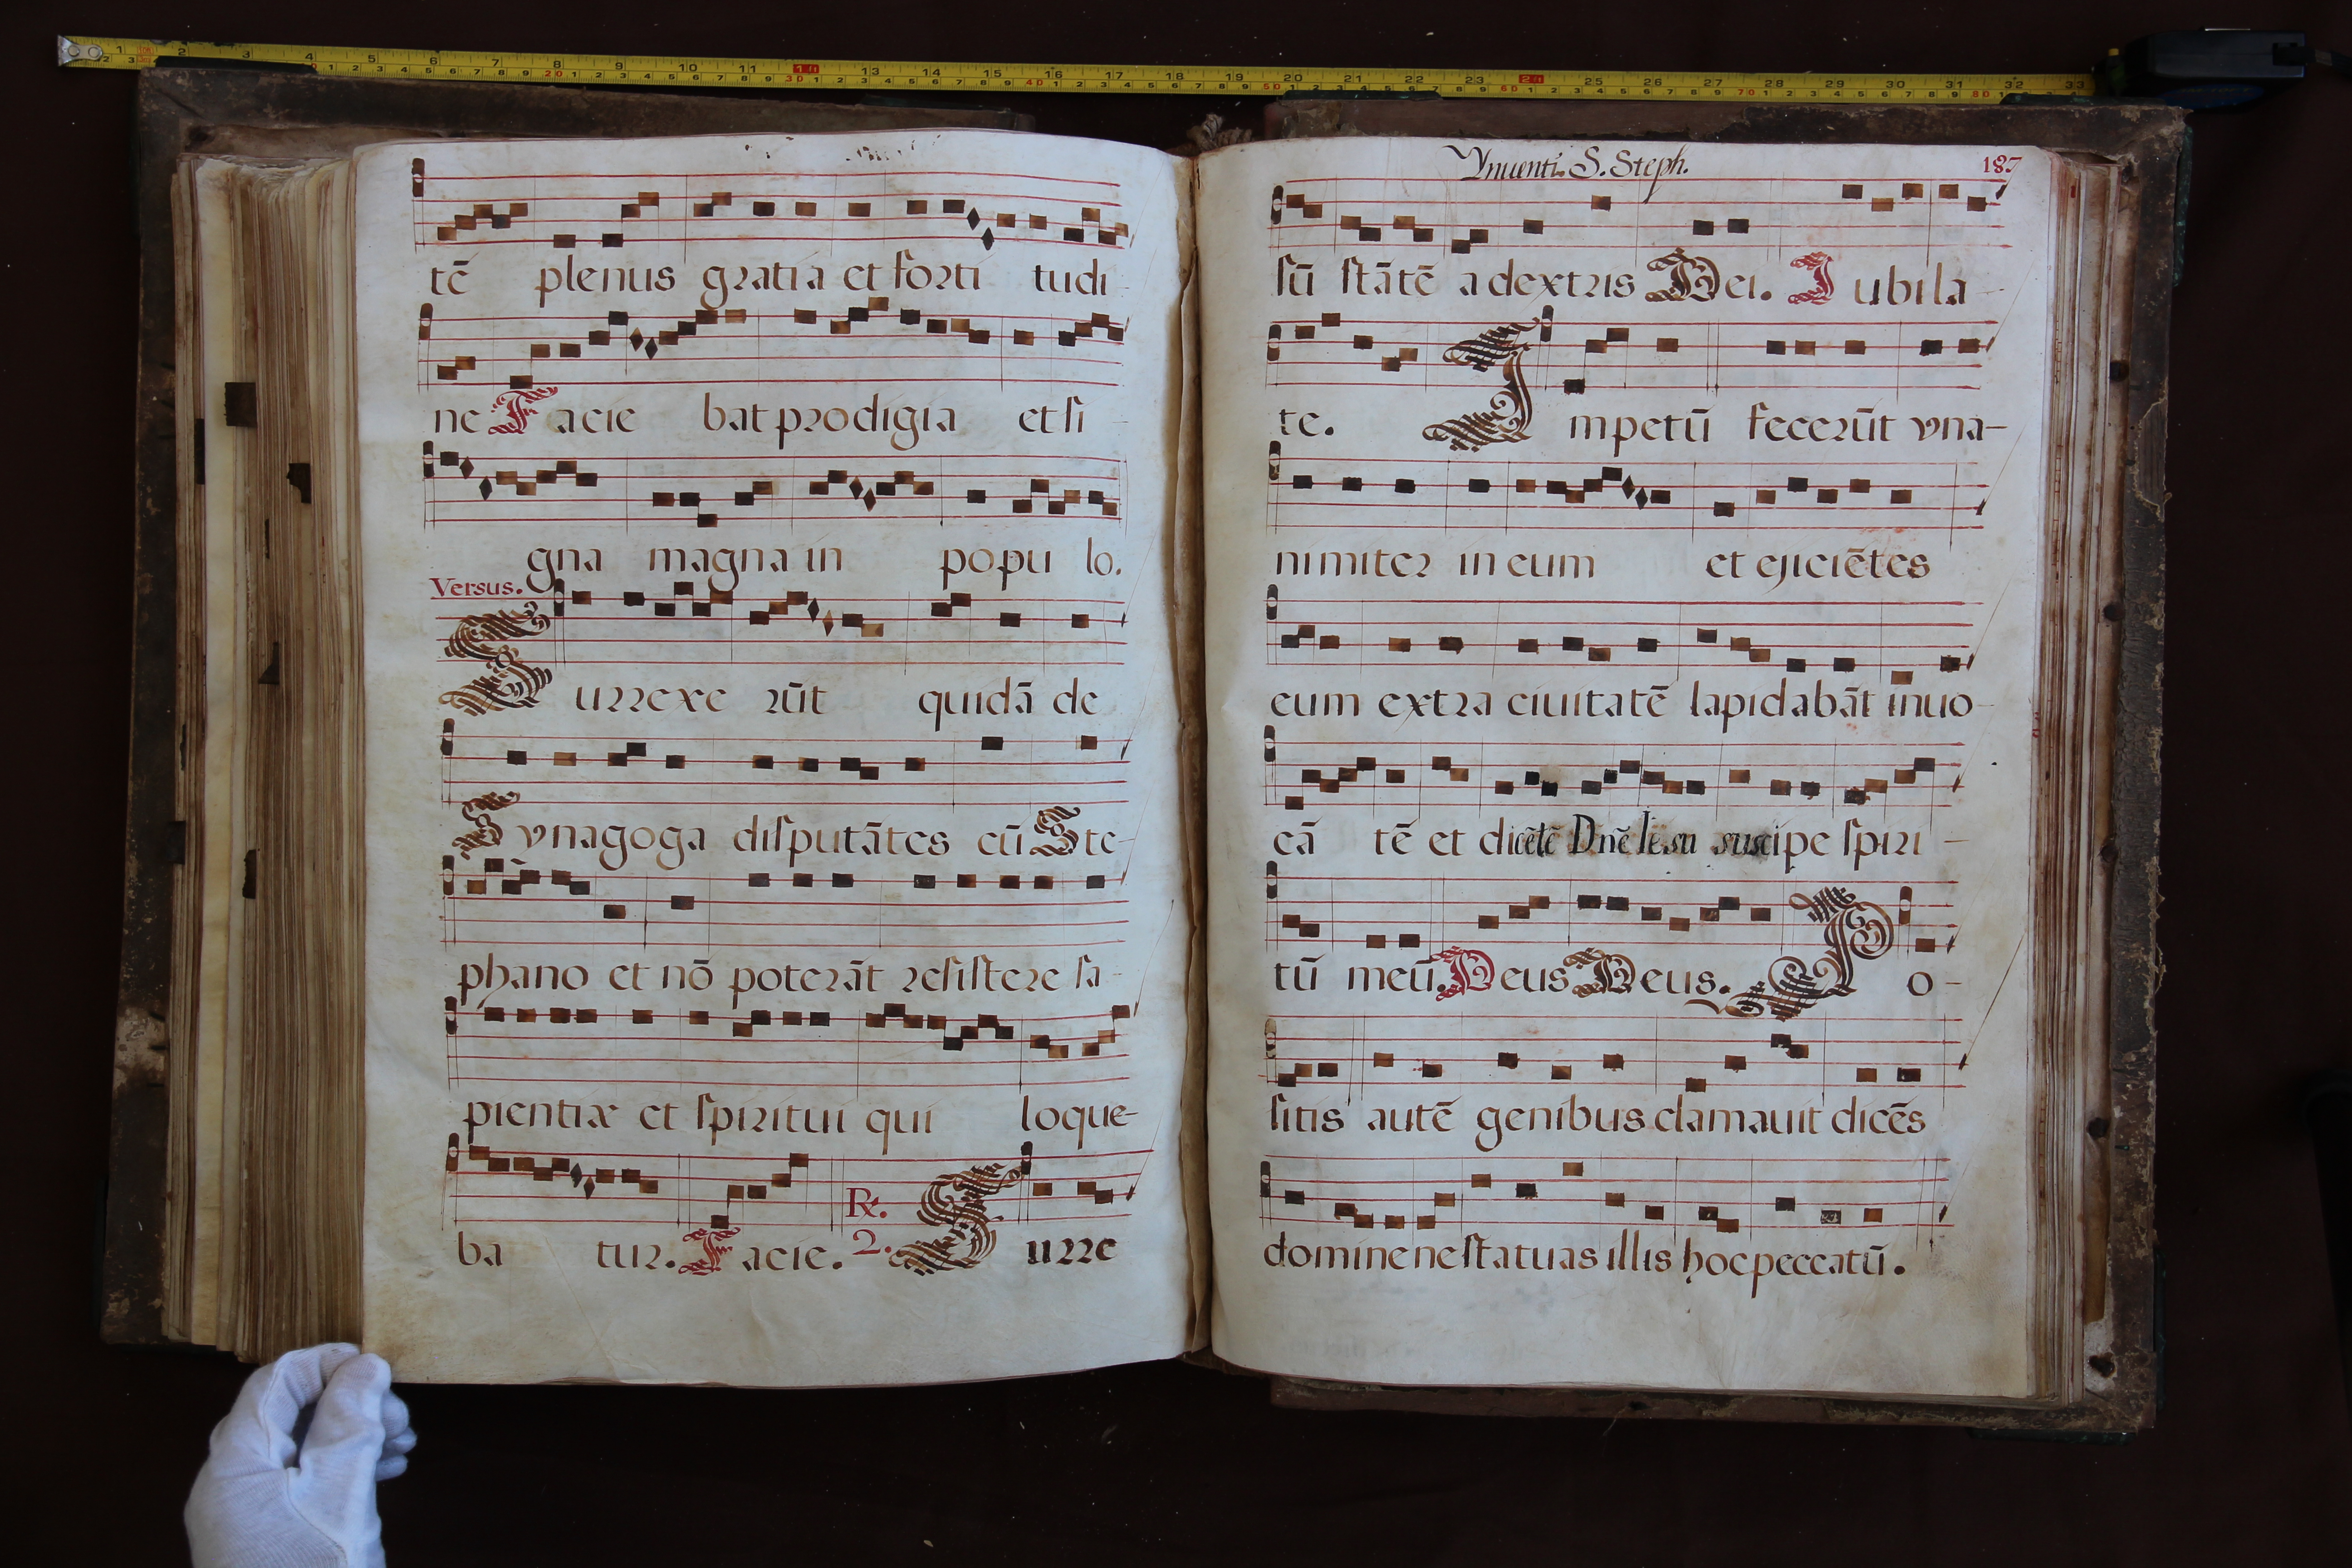 tē plenus gratia et forti tudi-
ne Facie bat prodigia et si-
gna magna in popu lo.
Versus.
Surrexe rūt quidā de
Synagoga disputātes cū Ste-
phano et nō poterāt resistere sa-
pientiæ et spiritui qui loque-
ba tur. Facie. R. 2. Surre
Ynuenti. S. Steph. 187
sū stātē a dextris Dei. Jubila-
te. Impetū fecerūt vna-
nimiter in eum et ejiciētes
eum extra ciuitatē lapidabāt inuo-
cā tē et dicētē Dnē Iesu suscipe spiri-
tū meū. Deus Deus. Po-
sitis autē genibus clamauit dicēs
domine ne statuas illis hoc peccatū.